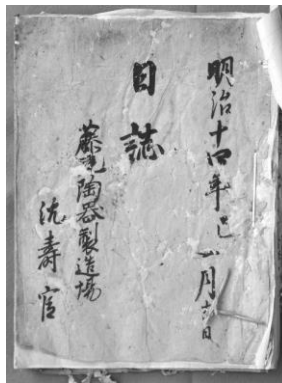 明治十四年巳一月日
日誌
藤陶器製造場
沈壽官